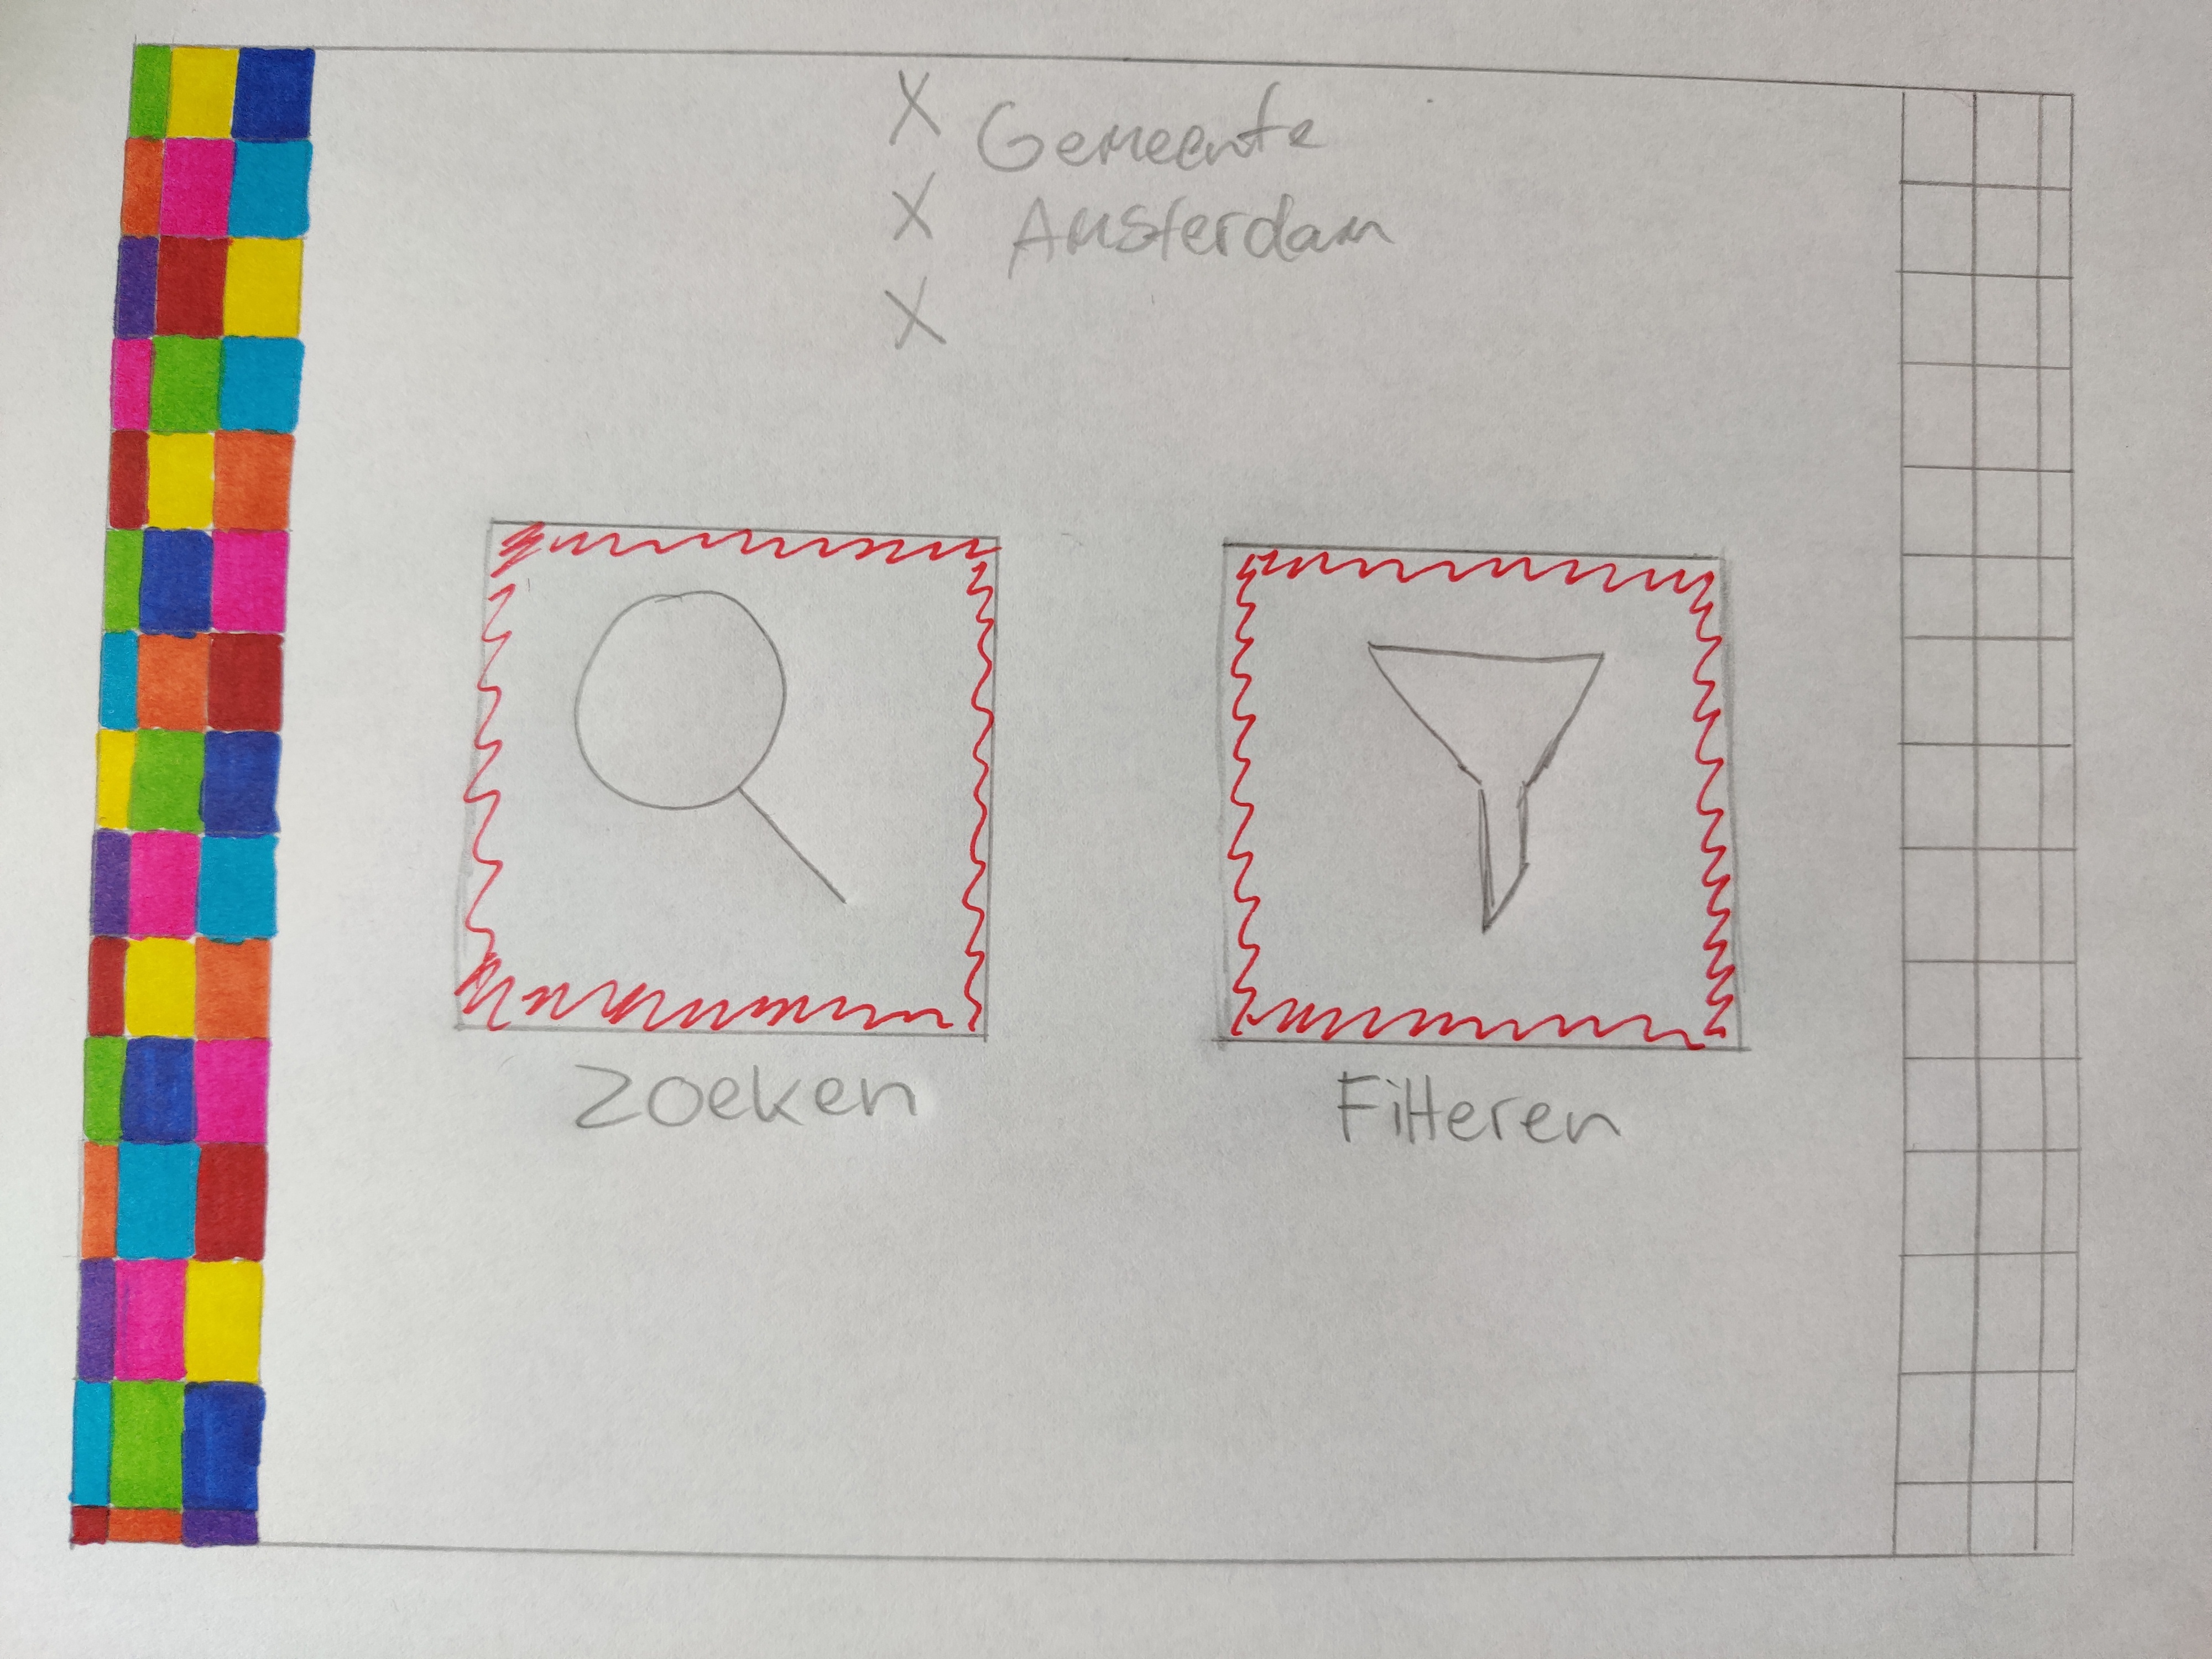 X Gemeente
X Amsterdam
X
Zoeken
Filteren